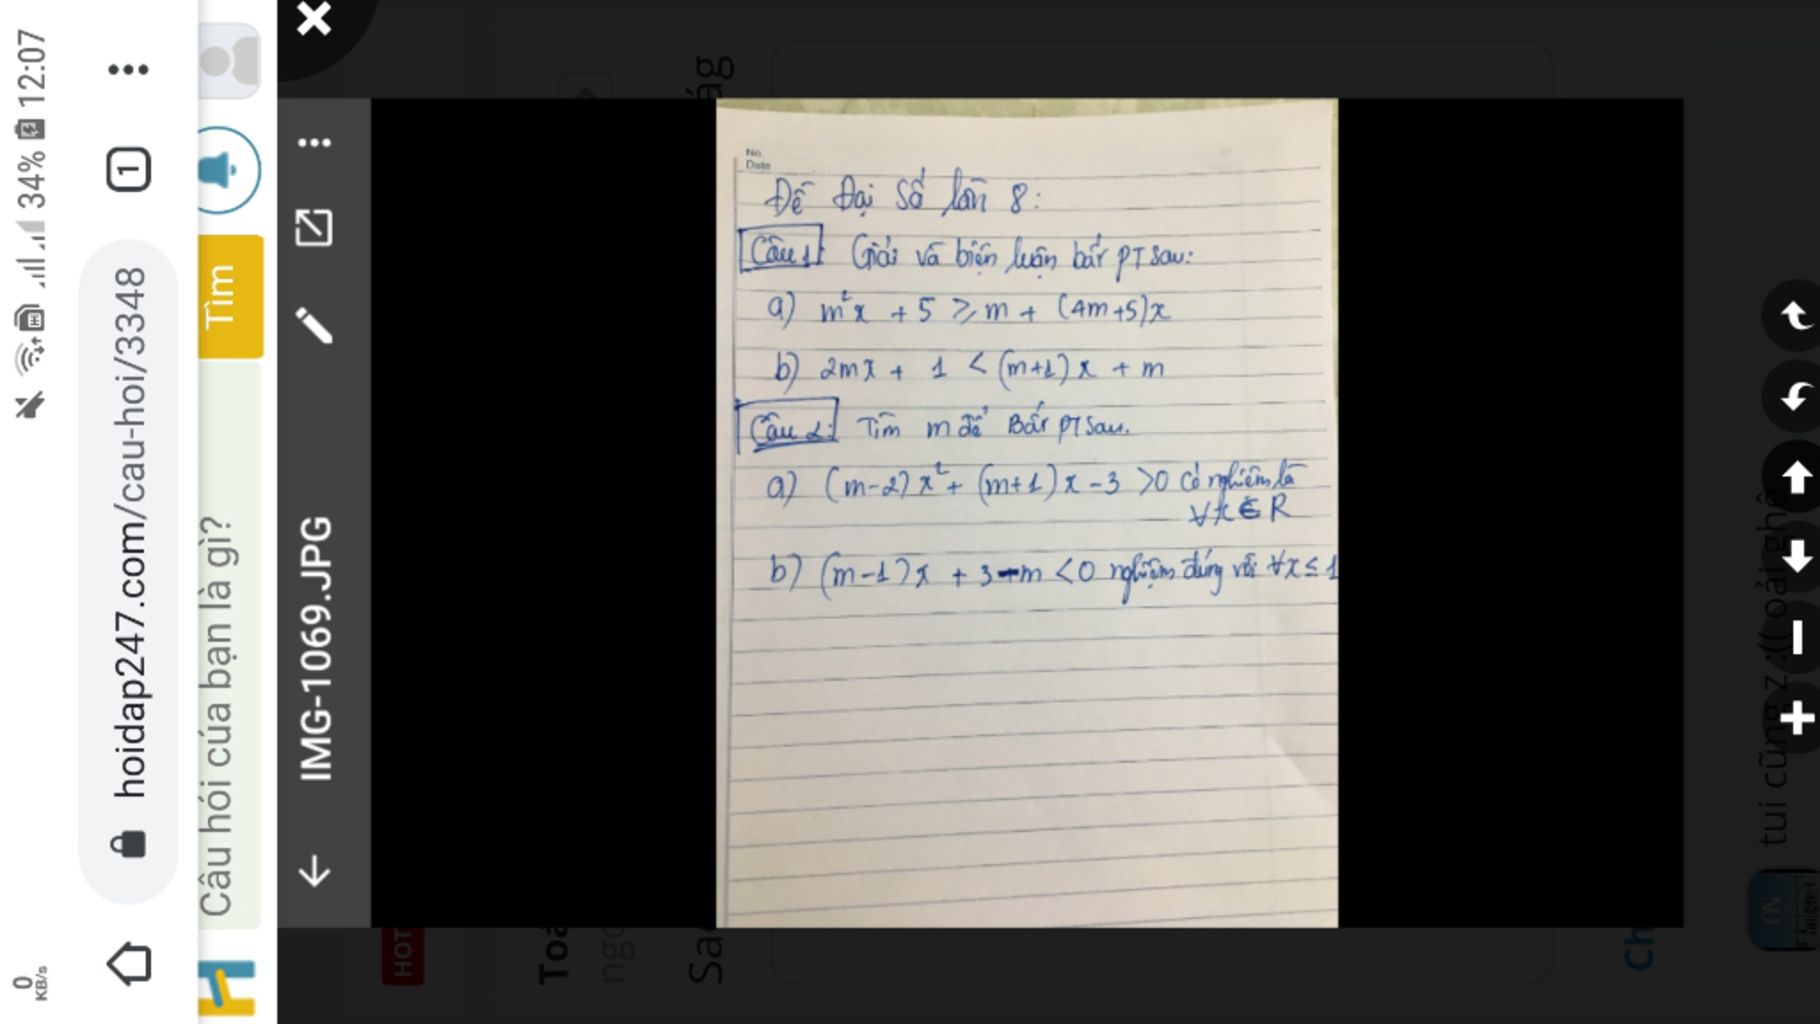 0 KB/s
34% 12:07
hoidap247.com/cau-hoi/3348
1
Câu hỏi của bạn là gì?
Tìm
IMG-1069.JPG
HOT
No.
Date
Đề Đại Số lần 8:
Câu 1: Giải và biện luận bất PT sau:
a) m²x + 5 ≥ m + (4m+5)x
b) 2mx + 1 < (m+1)x + m
Câu 2: Tìm m để Bất PT sau.
a) (m-2)x² + (m+1)x - 3 >0 có nghiệm là
∀x ∈ R
b) (m-1)x + 3-m <0 nghiệm đúng với ∀x ≤ 1
tui cũng z :(( oải ghê